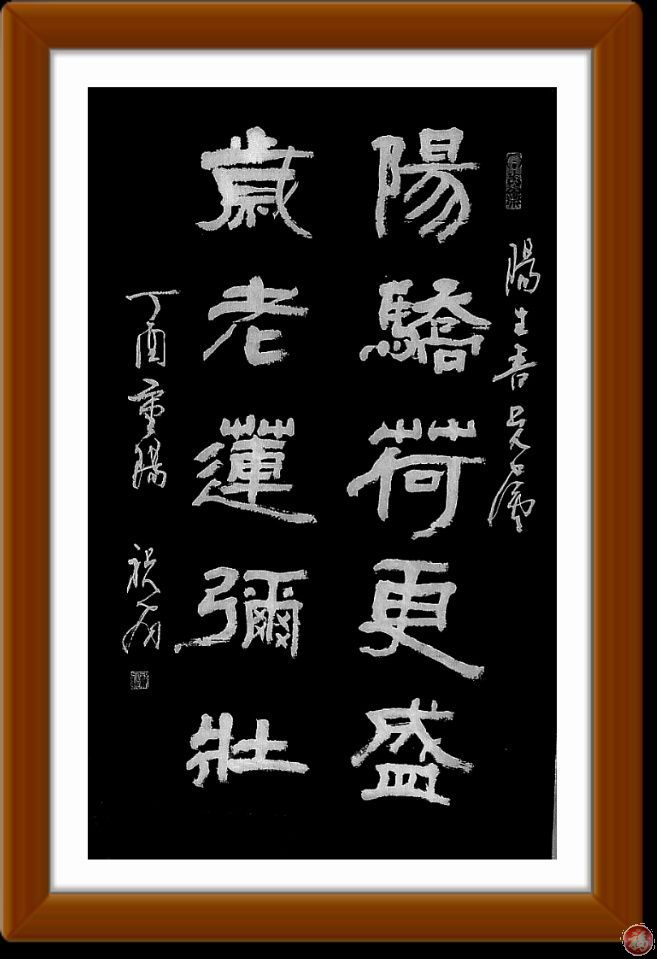 陽生吾兄屬
陽驕荷更盛
歲老蓮彌壯
丁酉重陽
福